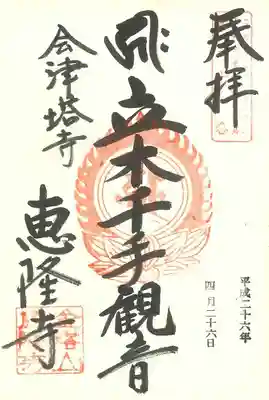 奉拝
平成二十六年
四月二十六日
立木千手観音
会津塔寺
恵隆寺